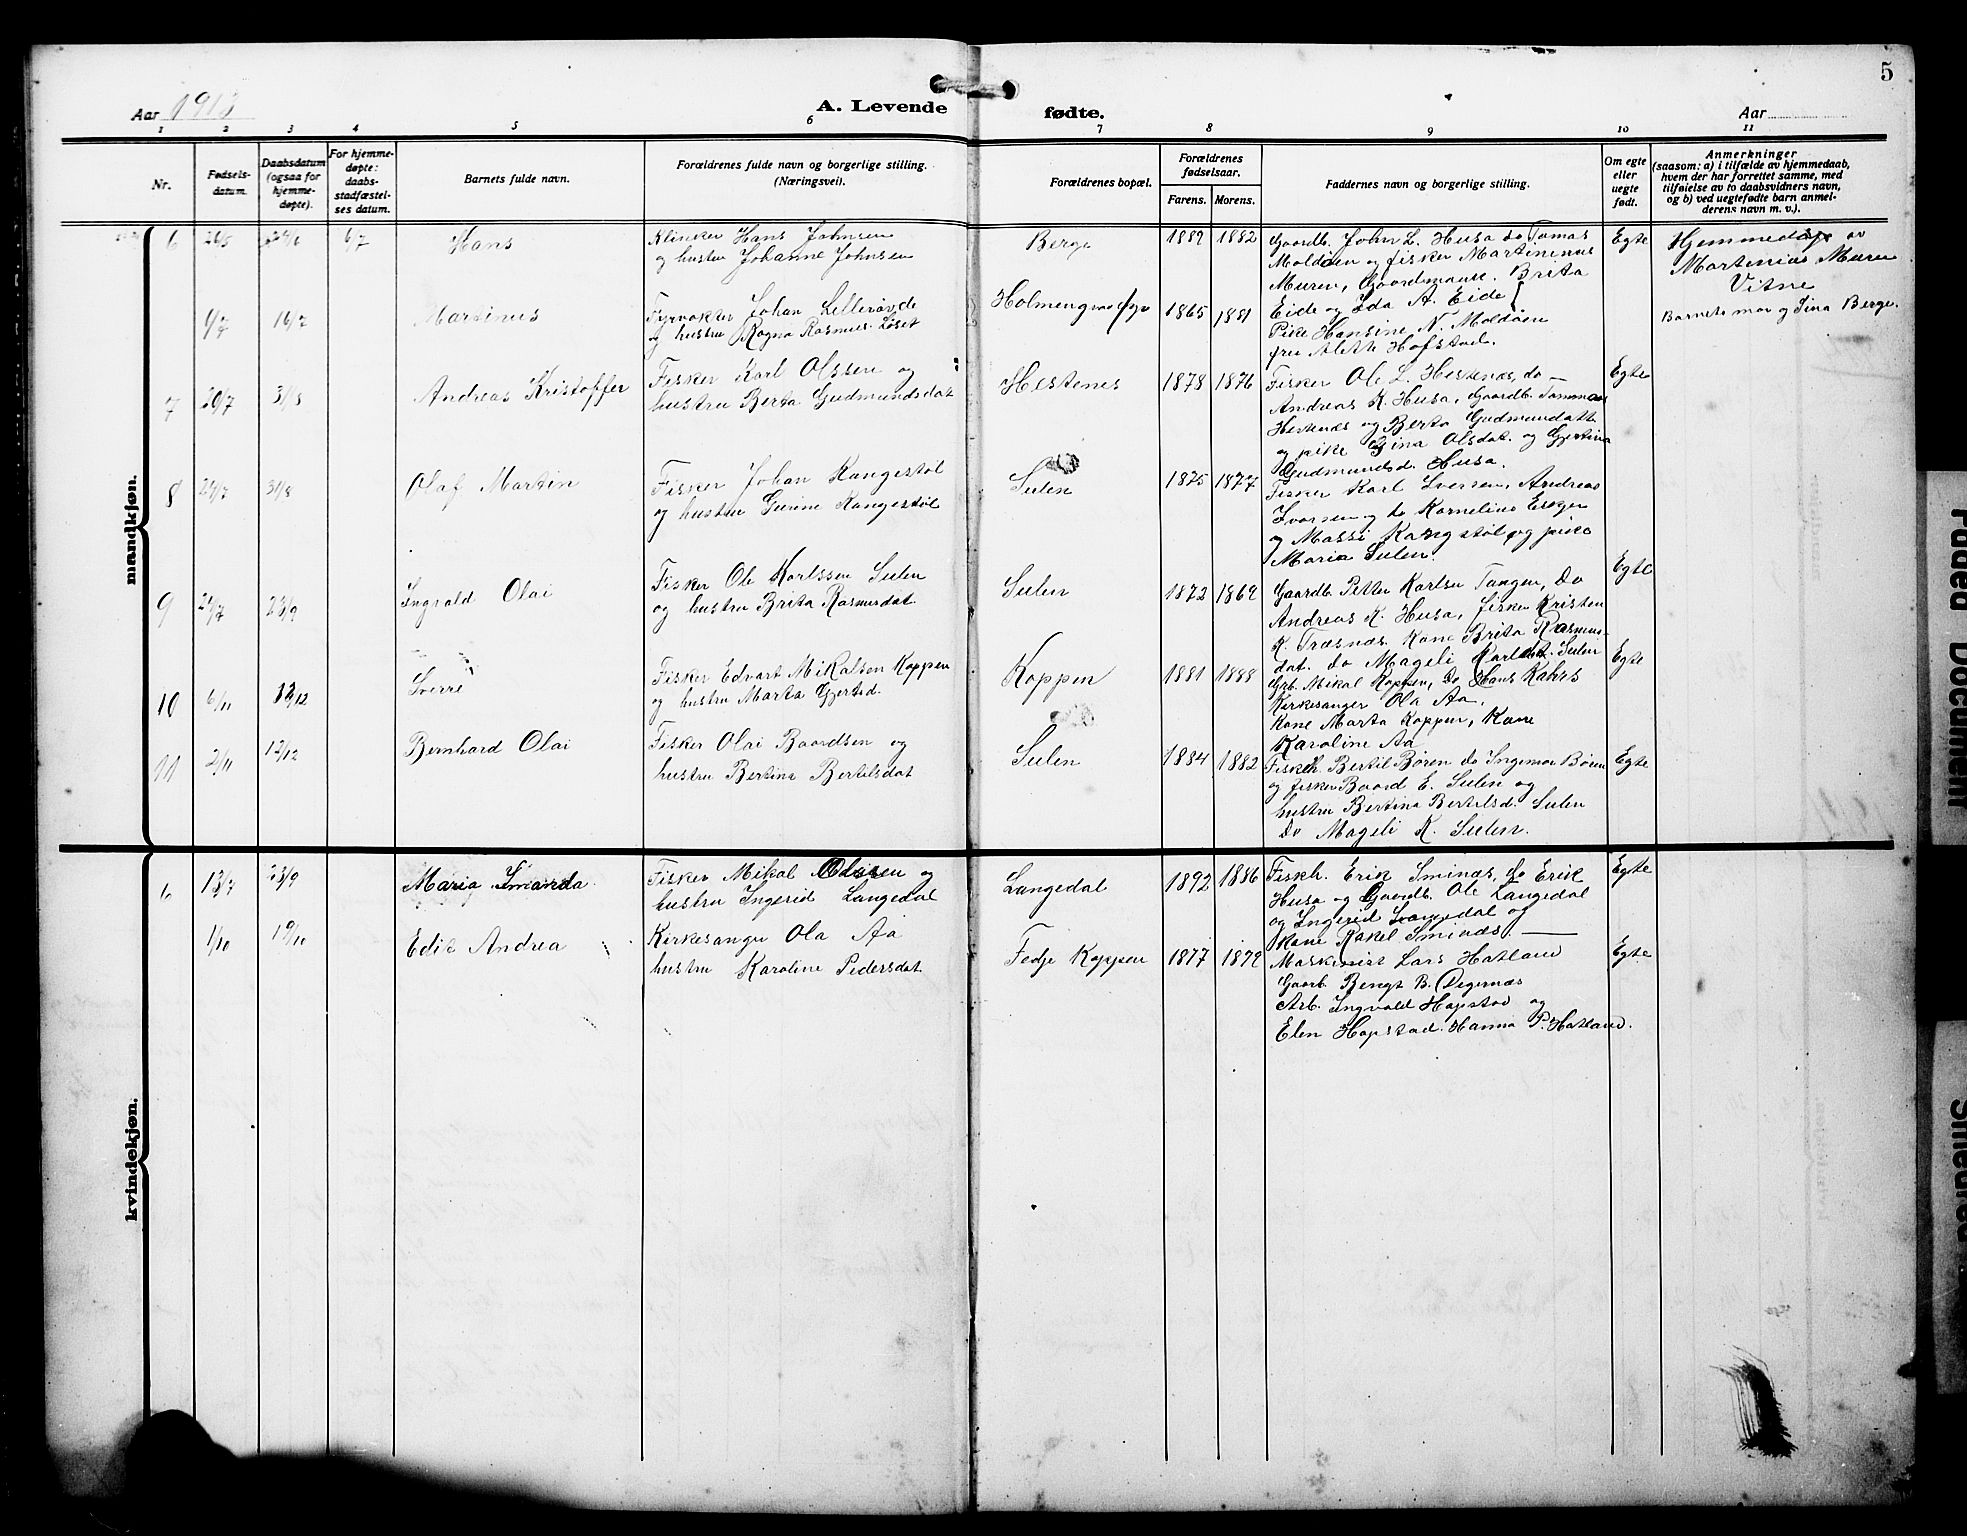 5
Aar 1913
A. Levende fødte.
Aar
1 2 3 4 5 6 7 8 9 10 11
Nr.
Fødsels-
datum.
Daabsdatum
(ogsaa for
hjemme-
døpte).
For hjemme-
døpte:
daabs-
stadfæstel-
ses datum.
Barnets fulde navn.
Forældrenes fulde navn og borgerlige stilling.
(Næringsvei).
Forældrenes bopæl.
Forældrenes
fødselsaar.
Farens. Morens.
Faddernes navn og borgerlige stilling.
Om egte
eller
uegte
født.
Anmerkninger
(saasom: a) i tilfælde av hjemmedaab,
hvem der har forrettet samme, med
tilføielse av to daabsvidners navn,
og b) ved uegtefødte barn anmel-
derens navn m. v.).
mandkjøn.
6 26/5 6/7 Hans
Klinker Hans Johnsen
og hustru Johanne Johnsen
Berge 1889 1882
Gaardb. John L. Husa do Tomas
Moldøen og fisker Martininus
Muren, Gaardmansk. Brita
Eide og Ida A. Eide
Egte
Hjemmedøpt av
Martenius Muren
Vitne
Barnets mor og Sina Berge.
16/7 Martinus
Fyrvokter Johan Lillerøvde
og hustru Ragna Rasmus. Løset
Holmengraa fyr 1865 1881
Pike Hansine N. Moldøen
fru Aleth Hofstad.
7 20/7 31/8 Andreas Kristoffer
Fisker Karl Olssen og
hustru Berta Gudmundsdat
Hestenes 1878 1876
Fisker Ole L. Hestenæs, do —
Andreas K. Husa, Gaardb. Tommas
Hestenæs og Berta Gudmundatt
og pike Gina Olsdat. og Gjertina
Gudmundsd. Husa.
Egte
8 24/7 31/8 Olaf Martin
Fisker Johan Kangestøl
og hustru Gurine Kangestøl
Sulen 1875 1877
Fisker Karl Iversen, Andreas
Ivarsen og do Kornelius
og Massi Kangstøl og pike
Maria Sulen.
9 24/7 23/9 Ingvald Olai
Fisker Ole Karlssen Sulen
og hustru Brita Rasmusdat.
Sulen 1872 1869
Gaardb. Petter Karlsen Tangen, do
Andreas K. Husa, fisker Kristen
K. Træsnæs. Kone Brita Rasmus-
dat. do Mageli Karlsdt. Sulen
Egte
10 6/11 Sverre
Fisker Edvart Mikalsen Koppen
og hustru Marta Gjertsd.
Koppen 1881 1888
Grb. Mikal Koppen, do Hans Kahrs
Kirkesanger Ola Aa,
Kone Marta Koppen, Kone
Karoline Aa
Egte
11 2/11 12/12 Bernhard Olai
Fisker Olai Baardsen og
hustru Bertina Bertilsdat
Sulen 1884 1882
Fiskeh. Bertil Børen do Ingemar Børen
og fisker Baard E. Sulen og
hustru Bertina Bertilsd. Sulen
do Mageli K. Sulen.
Egte
kvindekjøn.
6 13/7 23/9 Maria Smarda
Fisker Mikal Olssen og
hustru Ingerid Langedal
Langedal 1892 1886
Fiskh. Erik Sminæs, do Erik
Husa og Gaardb. Ole Langedal
og Ingerid Langedal og
Kone Rakel Sminæs. —
Egte
1/10 19/10 Edit Andrea
Kirkesanger Ola Aa
hustru Karoline Pedersdat
Fedje Koppen 1877 1879
Maskinist Lars Hatland
Gaarb. Bengt B. Degernæs
Arb. Ingvald Hopstad og
Elen Hopstad. Hanna P. Hatland.
Egte
Faded Document
Smeared